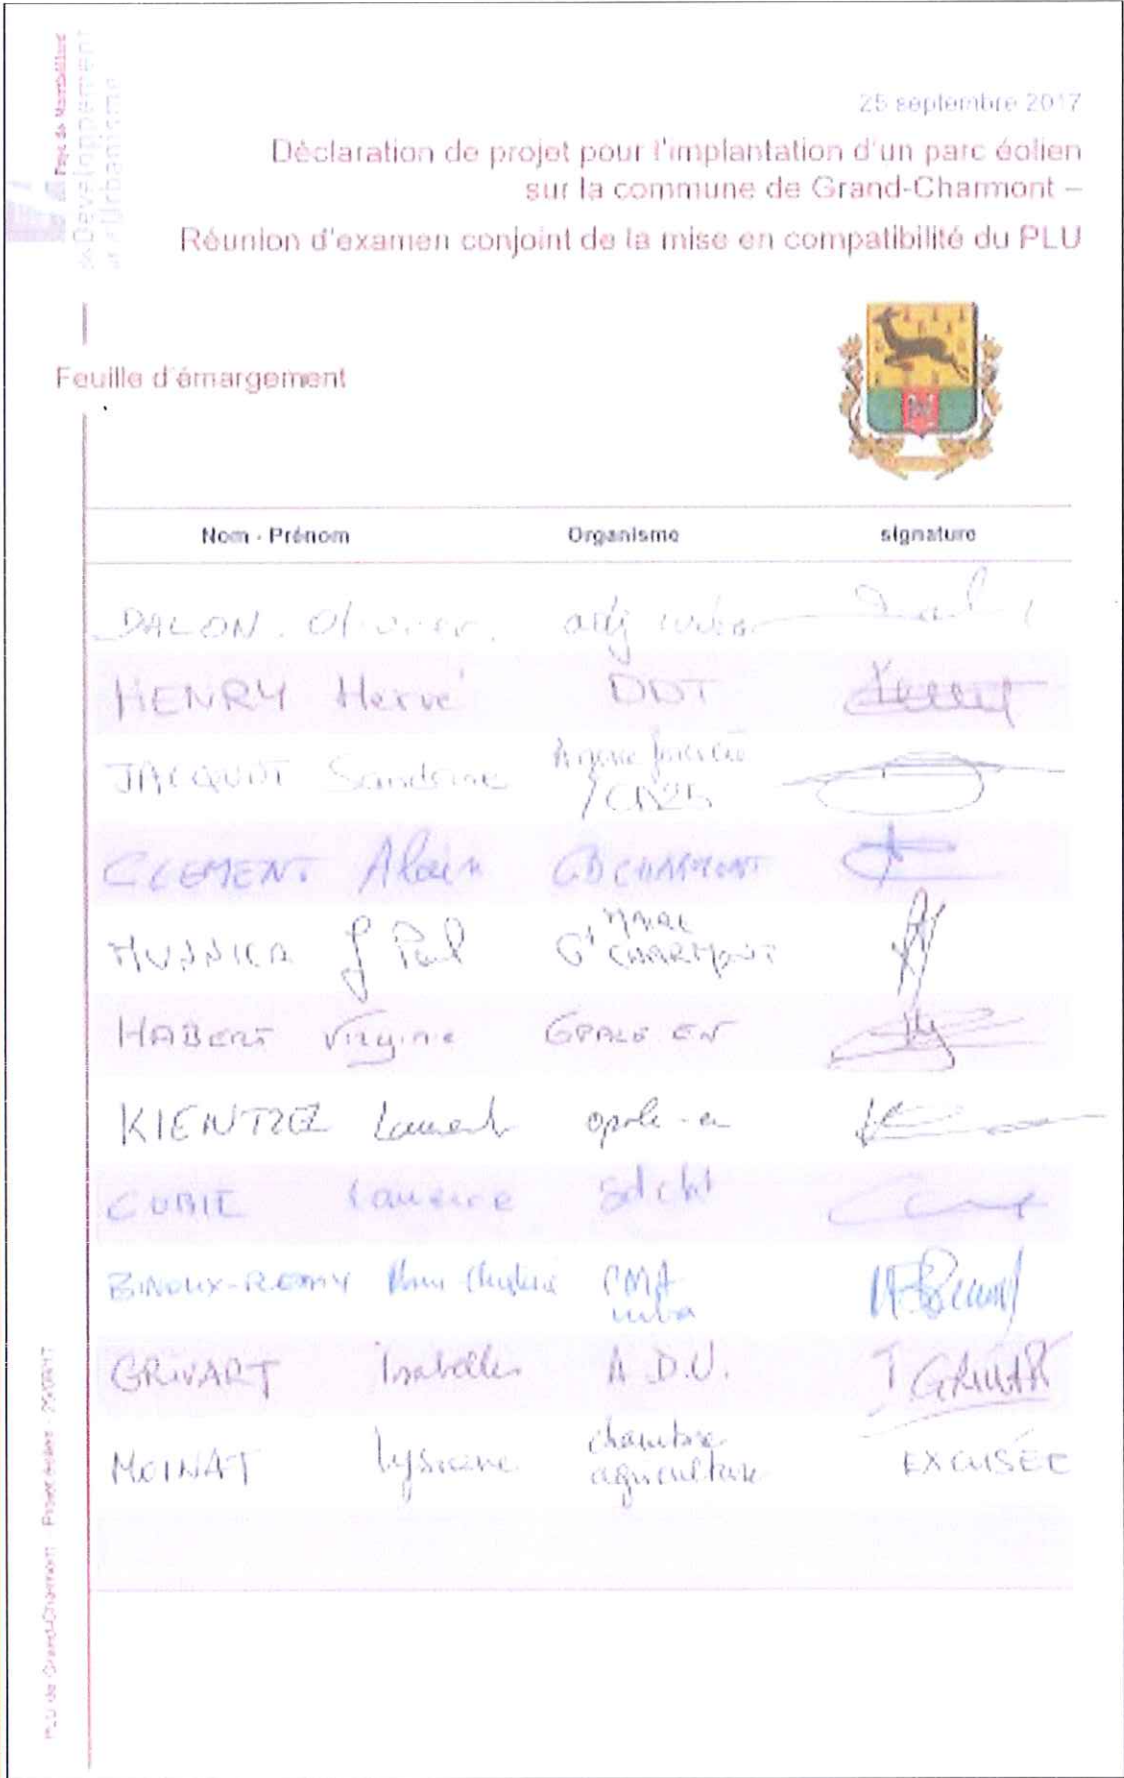 Pays de Montbéliard
Développement
Urbanisme
25 septembre 2017
Déclaration de projet pour l'implantation d'un parc éolien
sur la commune de Grand-Charmont –
Réunion d'examen conjoint de la mise en compatibilité du PLU
Feuille d'émargement
Nom - Prénom Organisme signature
DALON. Olivier. adj
HENRY Hervé DDT
JACQUOT Sandrine
CLEMENT Alain GD CHARMONT
J Paul MAIRE Gt CHARMONT
HABERT Virginie OPALE EN
KIENTZEL Laurent opale-en
CURIE Laurence
BINOUX-REMY CMA
GRIVART Isabelle A.D.U. I GRIVART
MOINAT Lysiane chambre agriculture EXCUSÉE
PLU de Grand-Charmont - Projet éolien - 25/09/17